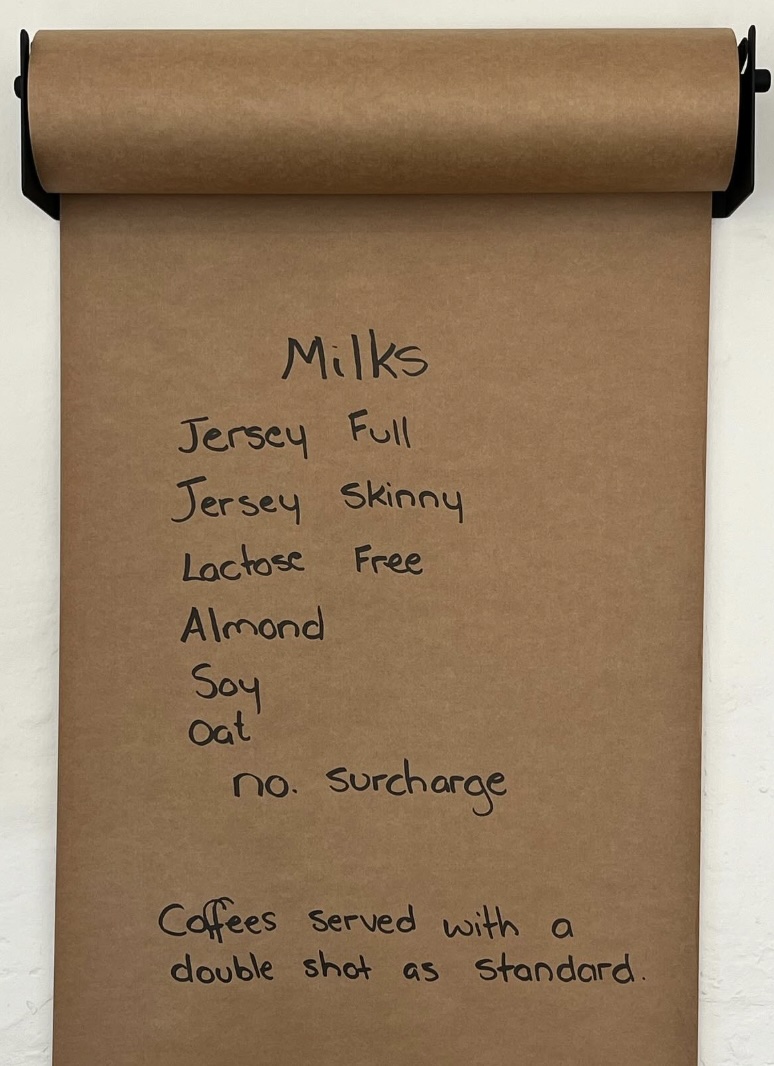 Milks
Jersey Full
Jersey Skinny
Lactose Free
Almond
Soy
Oat
no. surcharge
Coffees served with a
double shot as standard.